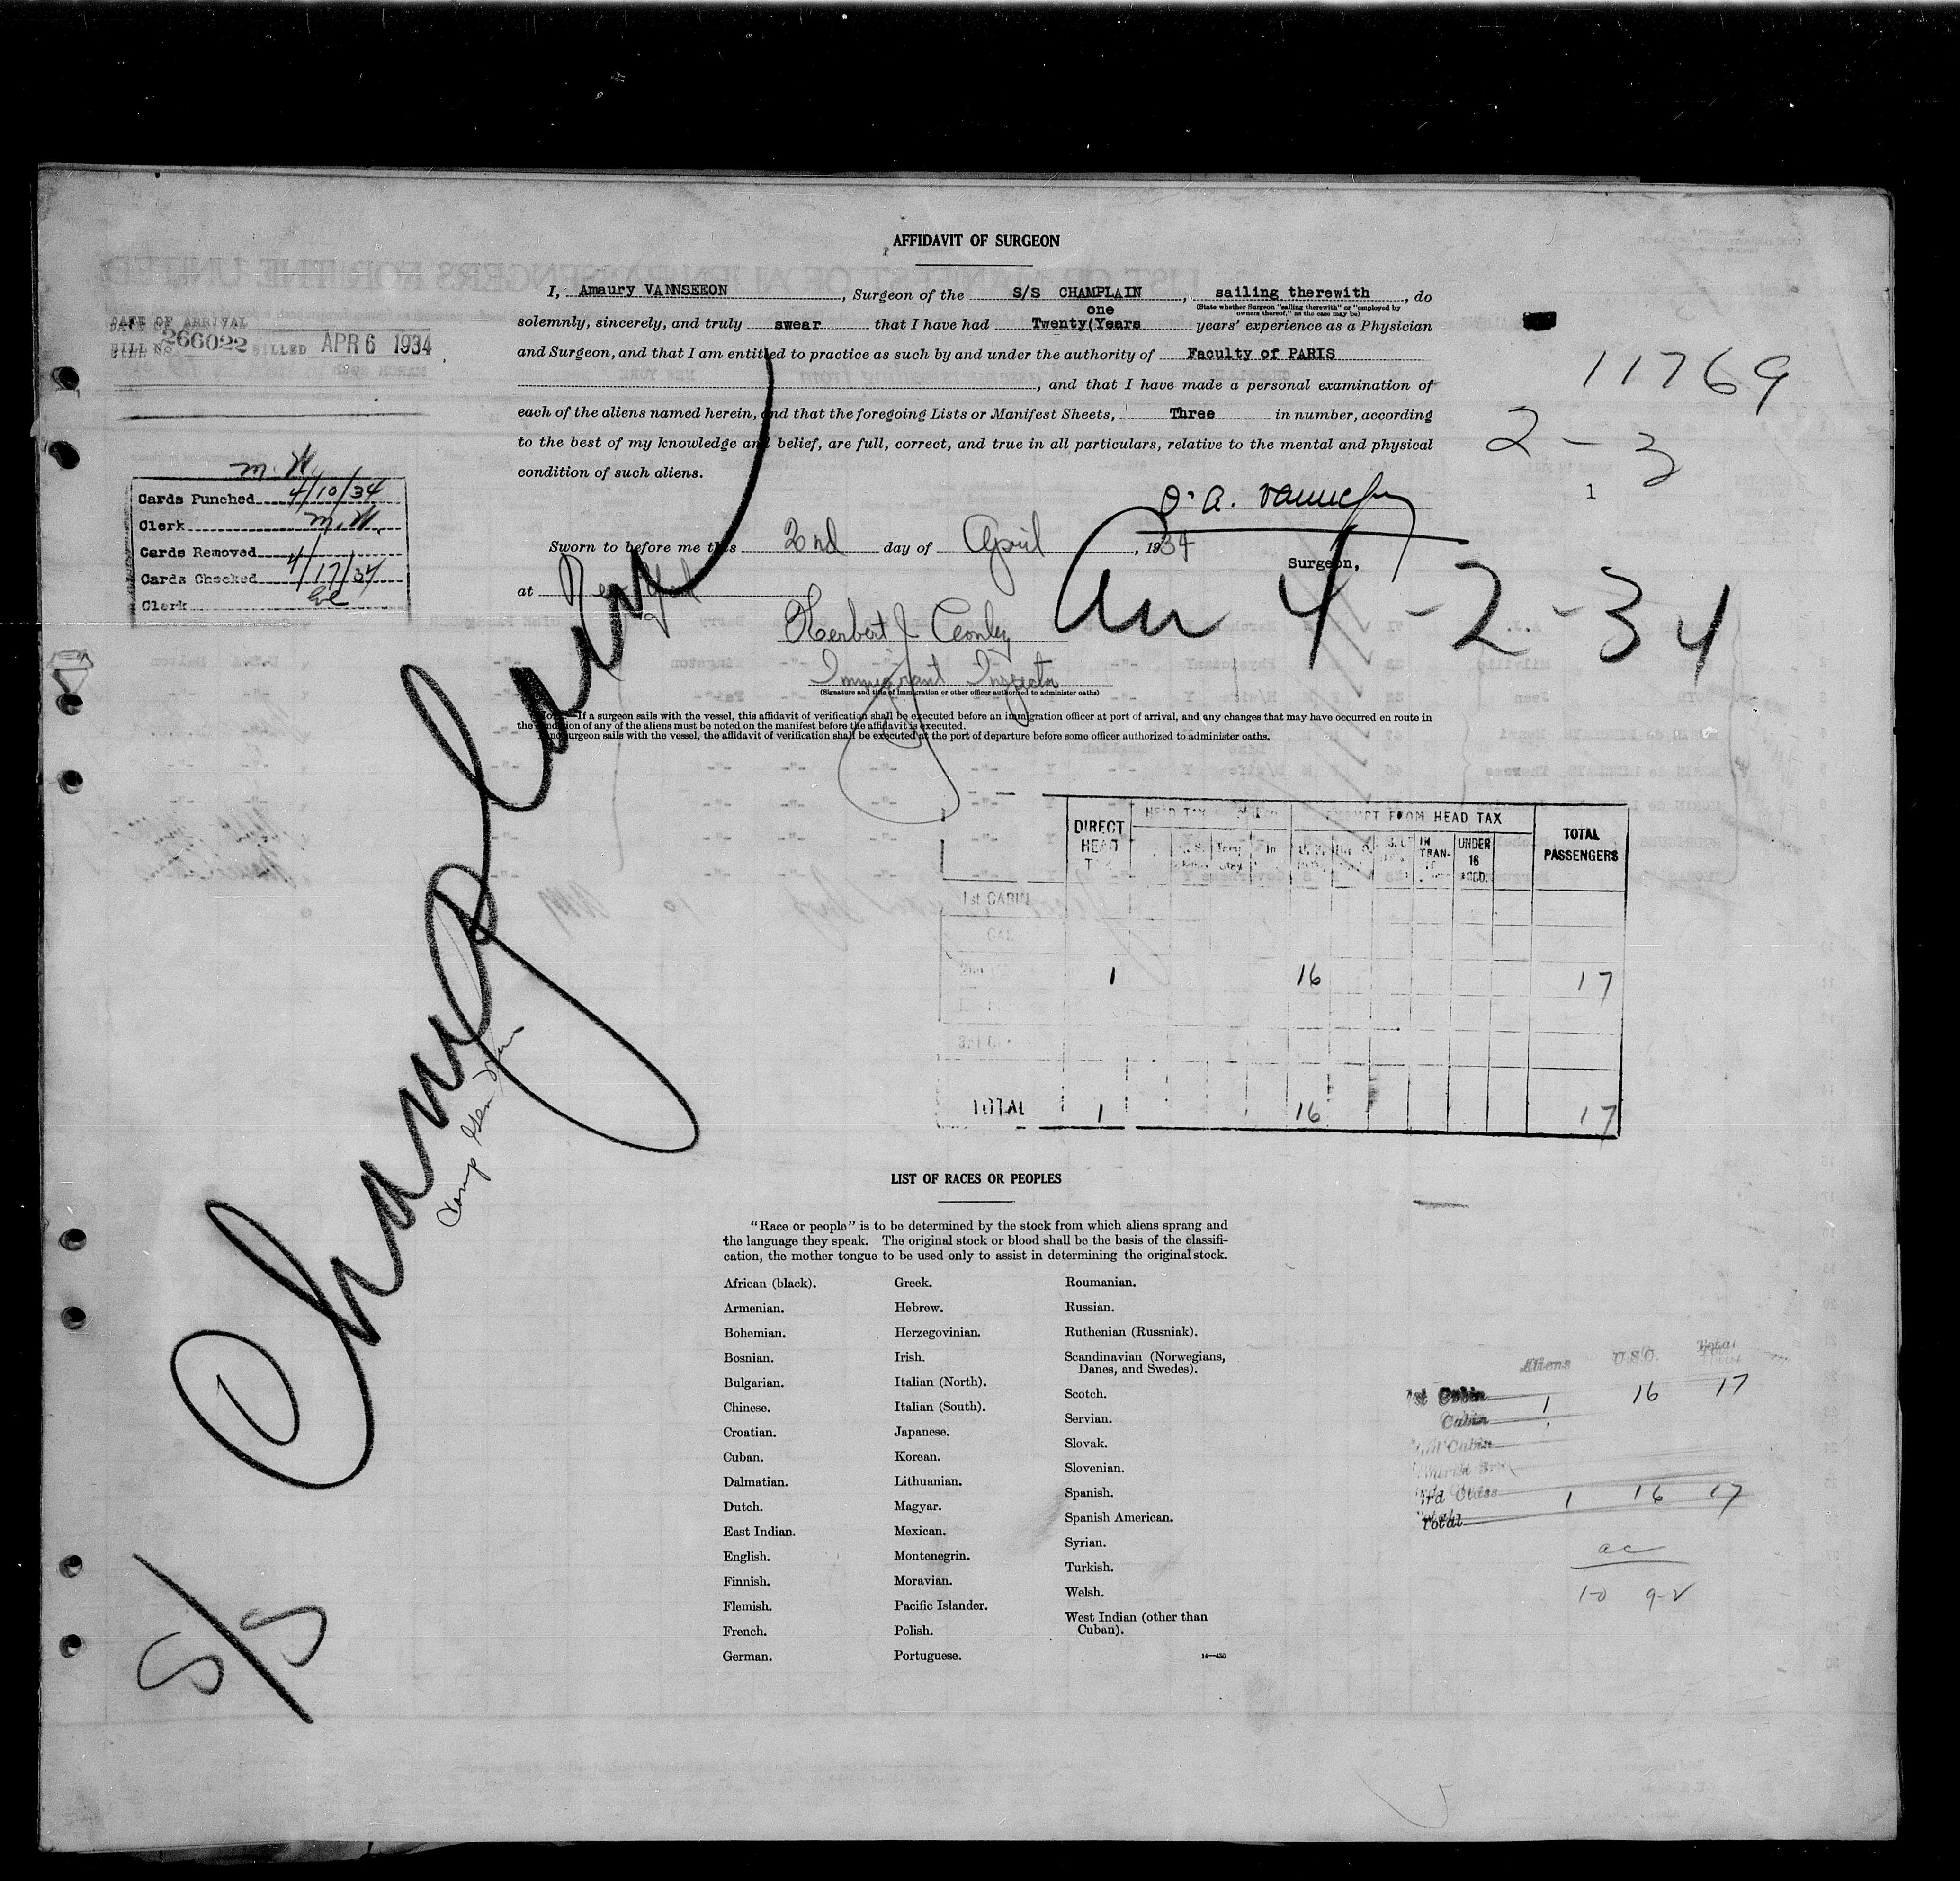 AFFIDAVIT OF SURGEON
I, Amaury VANNSEEON, Surgeon of the S/S CHAMPLAIN, sailing therewith, do
(State whether Surgeon "sailing therewith" or "employed by
owners thereof," as the case may be)
one
solemnly, sincerely, and truly swear that I have had Twenty(Years years' experience as a Physician
and Surgeon, and that I am entitled to practice as such by and under the authority of Faculty of PARIS
, and that I have made a personal examination of
each of the aliens named herein, and that the foregoing Lists or Manifest Sheets, Three in number, according
to the best of my knowledge and belief, are full, correct, and true in all particulars, relative to the mental and physical
condition of such aliens.
DATE OF ARRIVAL
BILL No. 266022 BILLED APR 6 1934
11769
2-3
1
M. W.
Cards Punched 4/10/34
Clerk M. W.
Cards Removed
Cards Checked 4/17/34
Clerk
Sworn to before me this 2nd day of April, 1934
Surgeon,
at New York
Herbert J Conley
Immigrant Inspector
(Signature and title of immigration or other officer authorized to administer oaths)
4-2-34
NOTE.—If a surgeon sails with the vessel, this affidavit of verification shall be executed before an immigration officer at port of arrival, and any changes that may have occurred en route in
the condition of any of the aliens must be noted on the manifest before the affidavit is executed.
If no surgeon sails with the vessel, the affidavit of verification shall be executed at the port of departure before some officer authorized to administer oaths.
S/S Champlain
DIRECT HEAD TAX
EXEMPT FROM HEAD TAX
TOTAL PASSENGERS
IN TRAN-
UNDER 16 ACCD.
1st CABIN
1 16 17
TOTAL 1 16 17
LIST OF RACES OR PEOPLES
"Race or people" is to be determined by the stock from which aliens sprang and
the language they speak. The original stock or blood shall be the basis of the classifi-
cation, the mother tongue to be used only to assist in determining the original stock.
African (black).
Armenian.
Bohemian.
Bosnian.
Bulgarian.
Chinese.
Croatian.
Cuban.
Dalmatian.
Dutch.
East Indian.
English.
Finnish.
Flemish.
French.
German.
Greek.
Hebrew.
Herzegovinian.
Irish.
Italian (North).
Italian (South).
Japanese.
Korean.
Lithuanian.
Magyar.
Mexican.
Montenegrin.
Moravian.
Pacific Islander.
Polish.
Portuguese.
Roumanian.
Russian.
Ruthenian (Russniak).
Scandinavian (Norwegians,
Danes, and Swedes).
Scotch.
Servian.
Slovak.
Slovenian.
Spanish.
Spanish American.
Syrian.
Turkish.
Welsh.
West Indian (other than
Cuban).
14—430
Aliens U.S.C. Total
1st Cabin 1 16 17
Cabin
Cabin
3rd Class
Total 1 16 17